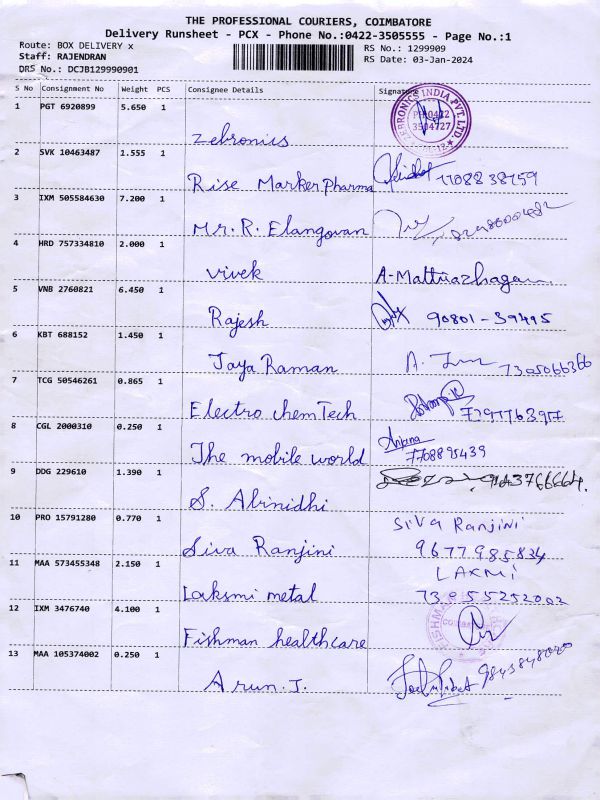 THE PROFESSIONAL COURIERS, COIMBATORE
Delivery Runsheet - PCX - Phone No.:0422-3505555 - Page No.:1
Route: BOX DELIVERY x RS No.: 1299909
Staff: RAJENDRAN RS Date: 03-Jan-2024
DRS No.: DCJB129990901
S No Consignment No Weight PCS Consignee Details Signature
1 PGT 6920899 5.650 1
Zebronics ZEBRONICS INDIA PVT. LTD.
2 SVK 10463487 1.555 1
Rise Marker Pharma
3 IXM 505584630 7.200 1
Mr. R. Elangovan
4 HRD 757334810 2.000 1
Vivek
5 VNB 2760821 6.450 1
Rajesh 90801-39495
6 KBT 688152 1.450 1
Jaya Raman
7 TCG 50546261 0.865 1
Electro chemTech
8 CGL 2000310 0.250 1
The mobile world 7708895439
9 DDG 229610 1.390 1
S. Abinidhi
10 PRO 15791280 0.770 1 Siva Ranjini
Siva Ranjini 9677985834
11 MAA 573455348 2.150 1 LAXMi
Laksmi metal
12 IXM 3476740 4.100 1
Fishman healthcare
13 MAA 105374002 0.250 1
Arun.J. 9843848020